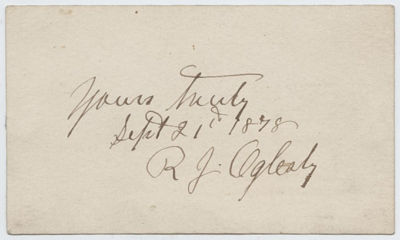 Yours Truly
Sept 21st 1878
R J. Oglesby